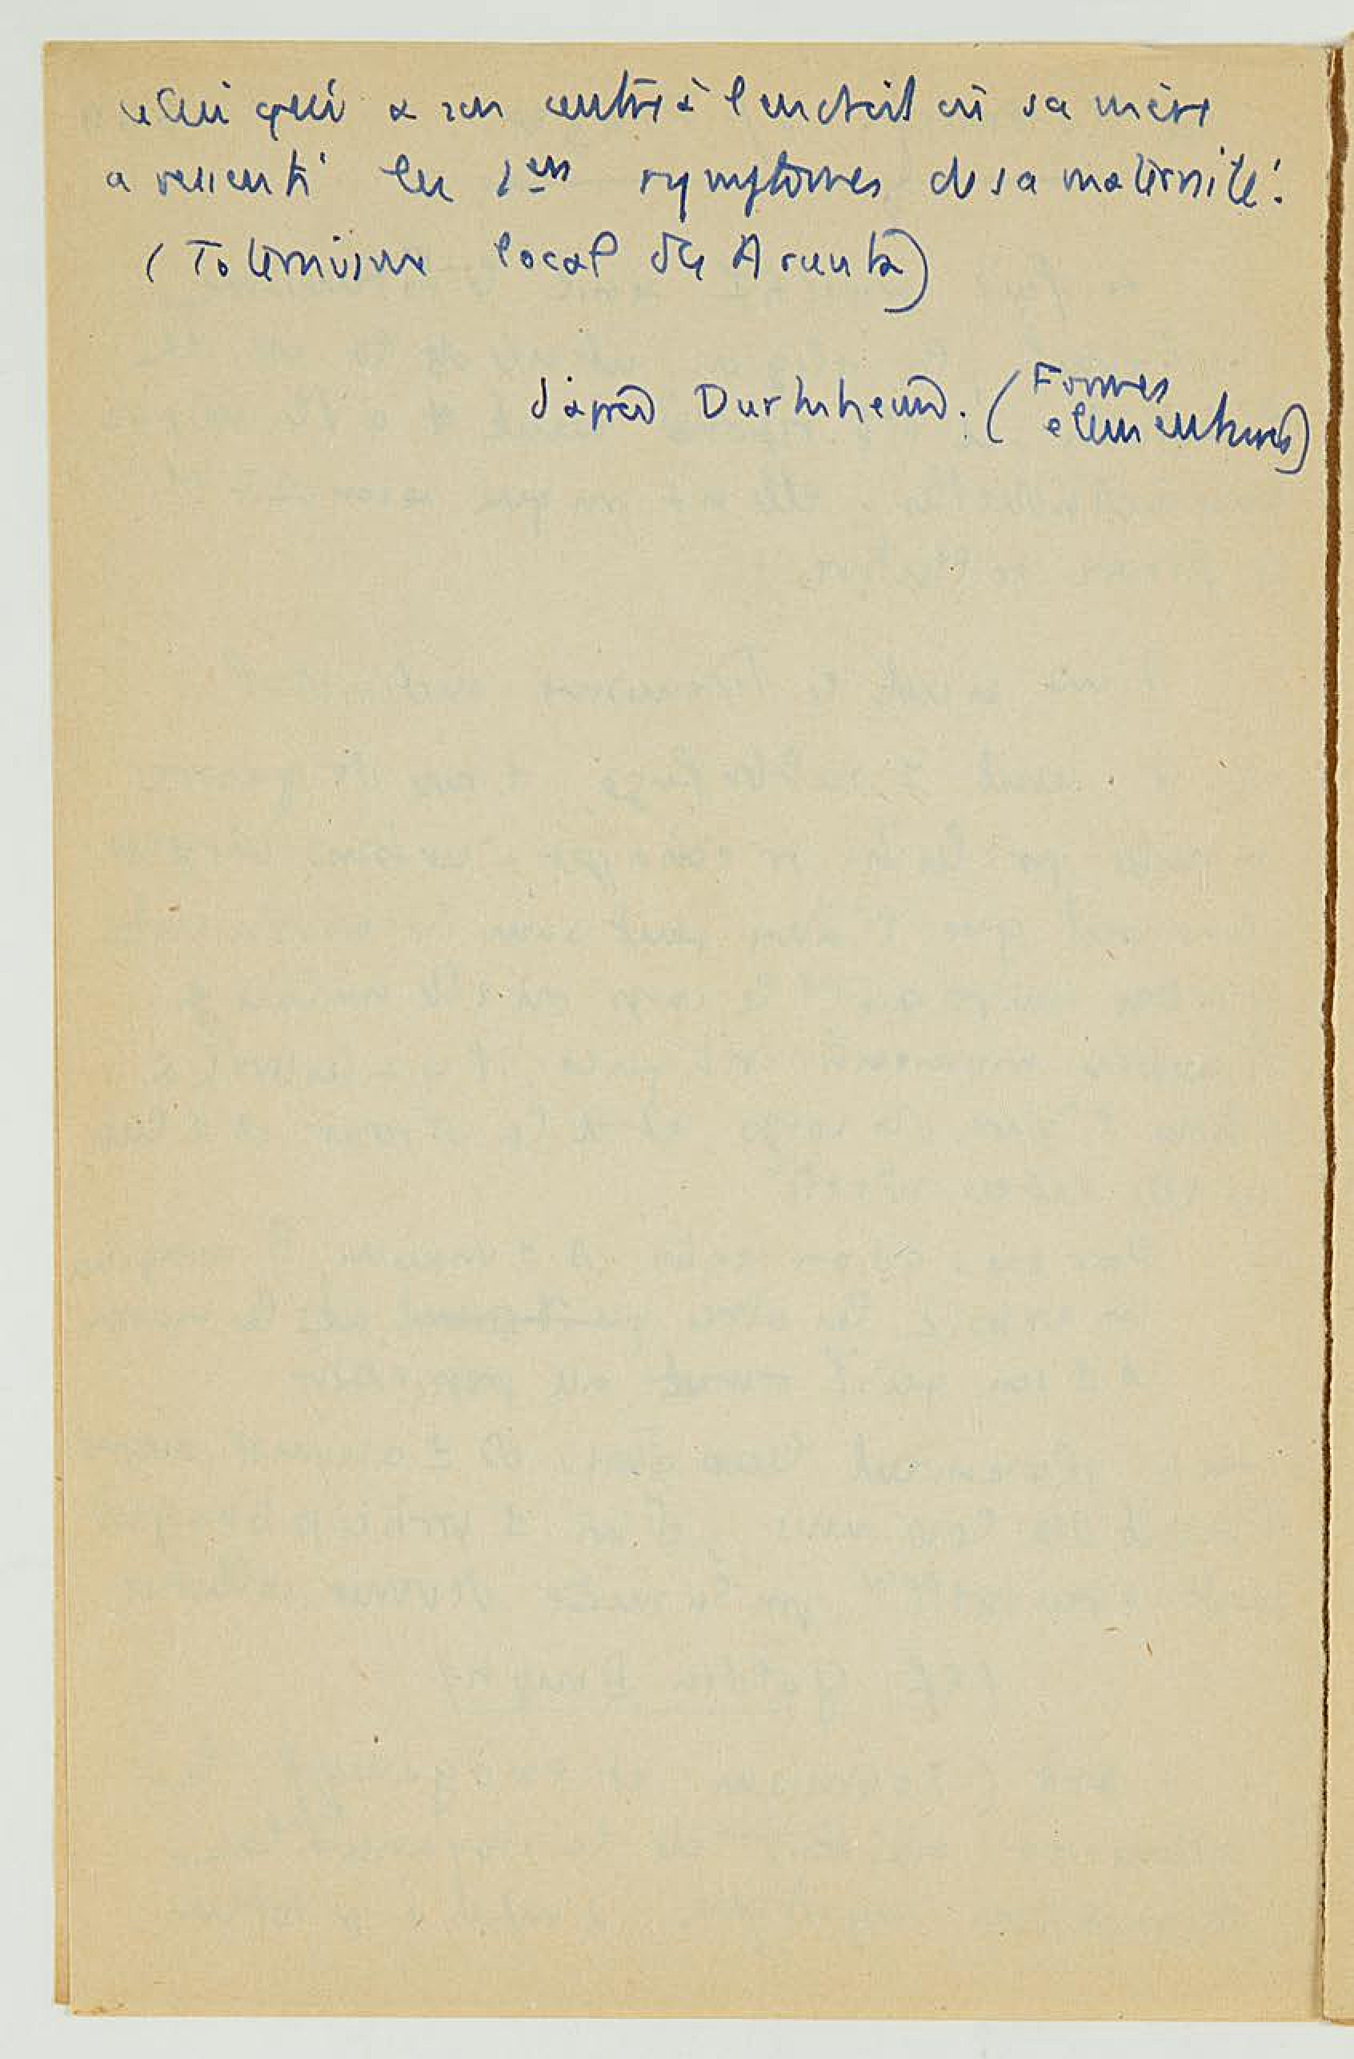 celui qui a son centre à l'endroit où sa mère
a ressenti les 1ers symptômes de sa maternité.
(Totémisme local des Arunta)
d'après Durkheim. (Formes
élémentaires)